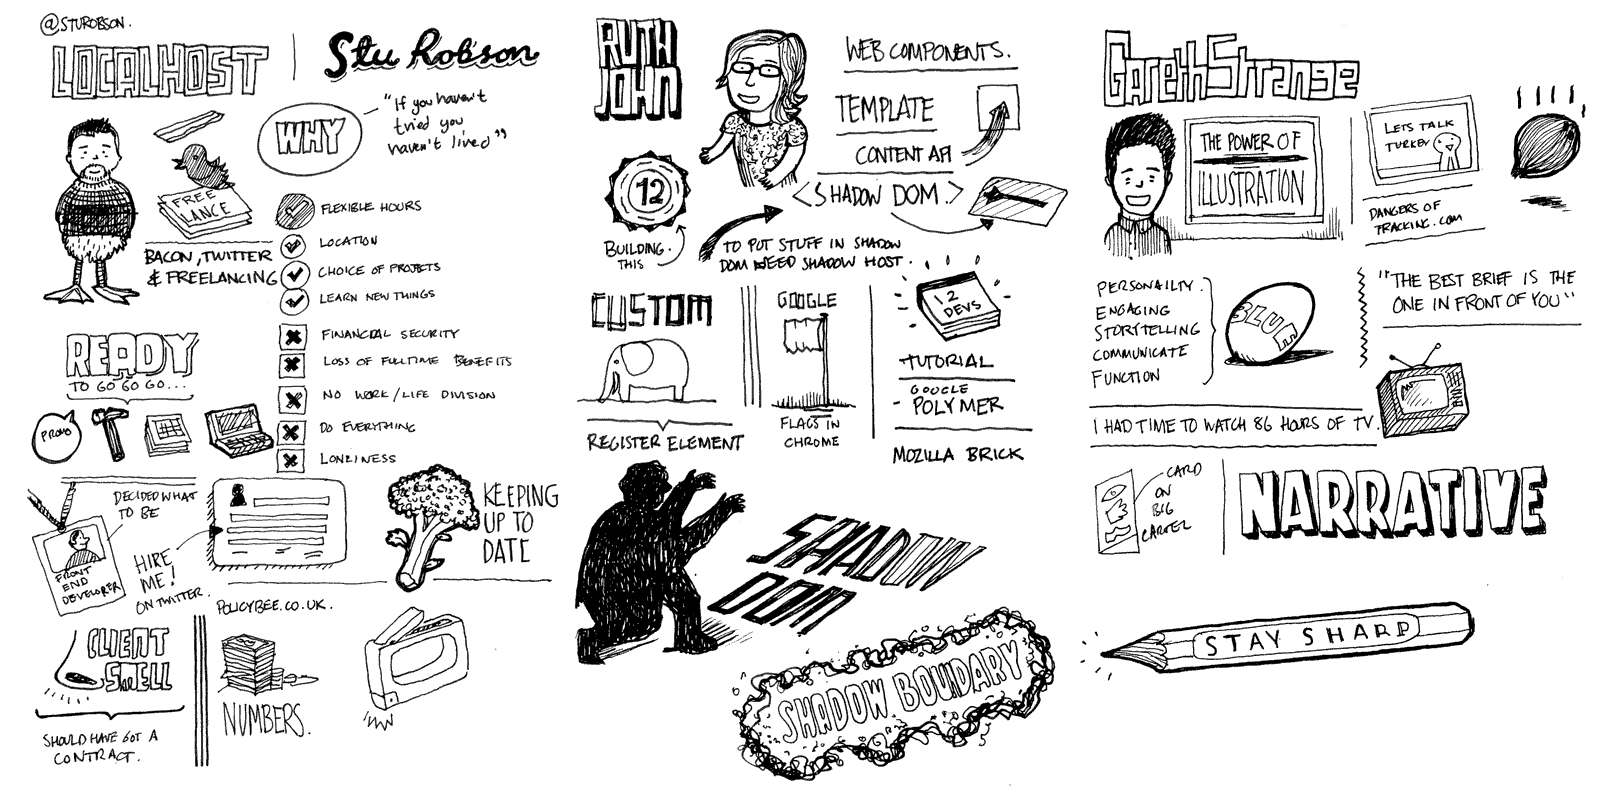 @STUROBSON.
LOCALHOST
Stu Robson
WHY
"If you haven't
tried you
haven't lived"
FREE
LANCE
BACON, TWITTER
& FREELANCING
FLEXIBLE HOURS
LOCATION
CHOICE OF PROJECTS
LEARN NEW THINGS
FINANCIAL SECURITY
LOSS OF FULLTIME BENEFITS
NO WORK/LIFE DIVISION
DO EVERYTHING
LONLINESS
READY
TO GO GO GO...
PROMO
DECIDED WHAT
TO BE
FRONT
END
DEVELOPER
HIRE
ME!
ON TWITTER.
KEEPING
UP TO
DATE
POLICYBEE.CO.UK.
CLIENT
SMELL
SHOULD HAVE GOT A
CONTRACT.
NUMBERS.
RUTH
JOHN
WEB COMPONENTS.
TEMPLATE
CONTENT API
<SHADOW DOM.>
12
BUILDING.
THIS
TO PUT STUFF IN SHADOW
DOM NEED SHADOW HOST.
CUSTOM
REGISTER ELEMENT
GOOGLE
FLAGS IN
CHROME
12
DEVS
TUTORIAL
GOOGLE
- POLYMER
MOZILLA BRICK
SHADOW
DOM
SHADOW BOUNDARY
Gareth Strange
THE POWER OF
ILLUSTRATION
LETS TALK
TURKEY
DANGERS OF
TRACING.COM
PERSONAILTY.
ENGAGING
STORYTELLING
COMMUNICATE
FUNCTION
BLUE
"THE BEST BRIEF IS THE
ONE IN FRONT OF YOU"
I HAD TIME TO WATCH 86 HOURS OF TV.
CARD
ON
BIG
CARTEL
NARRATIVE
STAY SHARP